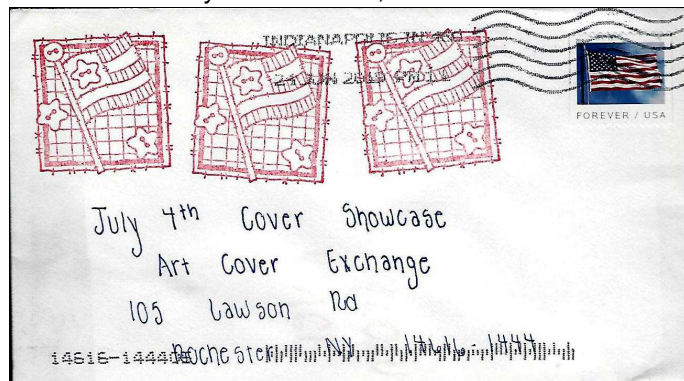 INDIANAPOLIS IN
24 JUN
FOREVER / USA
July 4th Cover Showcase
Art Cover Exchange
105 Lawson Rd
Rochester NY 14616-1444
14616-1444